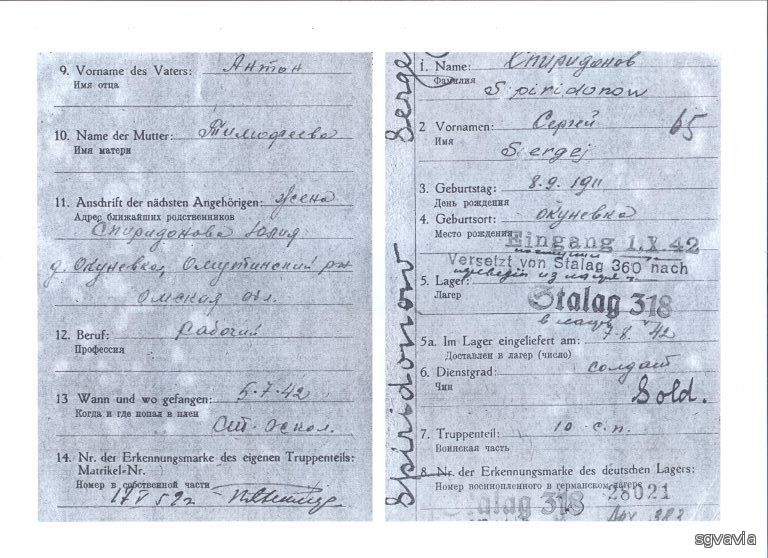 9. Vorname des Vaters: Антон
Имя отца
10. Name der Mutter: Тимофеева
Имя матери
11. Anschrift der nächsten Angehörigen: жена
Адрес ближайших родственников
Спиридонова Юлия
д. Окуневка, Омутинский р-н
Омская обл.
12. Beruf: Рабочий
Профессия
13 Wann und wo gefangen: 5.7.42
Когда и где попал в плен
Ст. Оскол.
14. Nr. der Erkennungsmarke des eigenen Truppenteils:
Matrikel-Nr.
Номер в собственной части
Sergej
Spiridonow
1. Name: Спиридонов
Фамилия
Spiridonow
2 Vornamen: Сергей
65
Имя
Sergej
3. Geburtstag: 8.9.1911
День рождения
4. Geburtsort: Окуневка
Место рождения
Eingang 1.X.42
Versetzt von Stalag 360 nach
5. Lager:
Лагерь
Stalag 318
5a. Im Lager eingeliefert am: 7-8. 42
Доставлен в лагерь (число)
6. Dienstgrad: солдат
Чин
Sold.
7. Truppenteil: 10 с.п.
Воинская часть
8. Nr. der Erkennungsmarke des deutschen Lagers:
Номер военнопленного в германском лагере
Stalag 318 28021
sgvavia